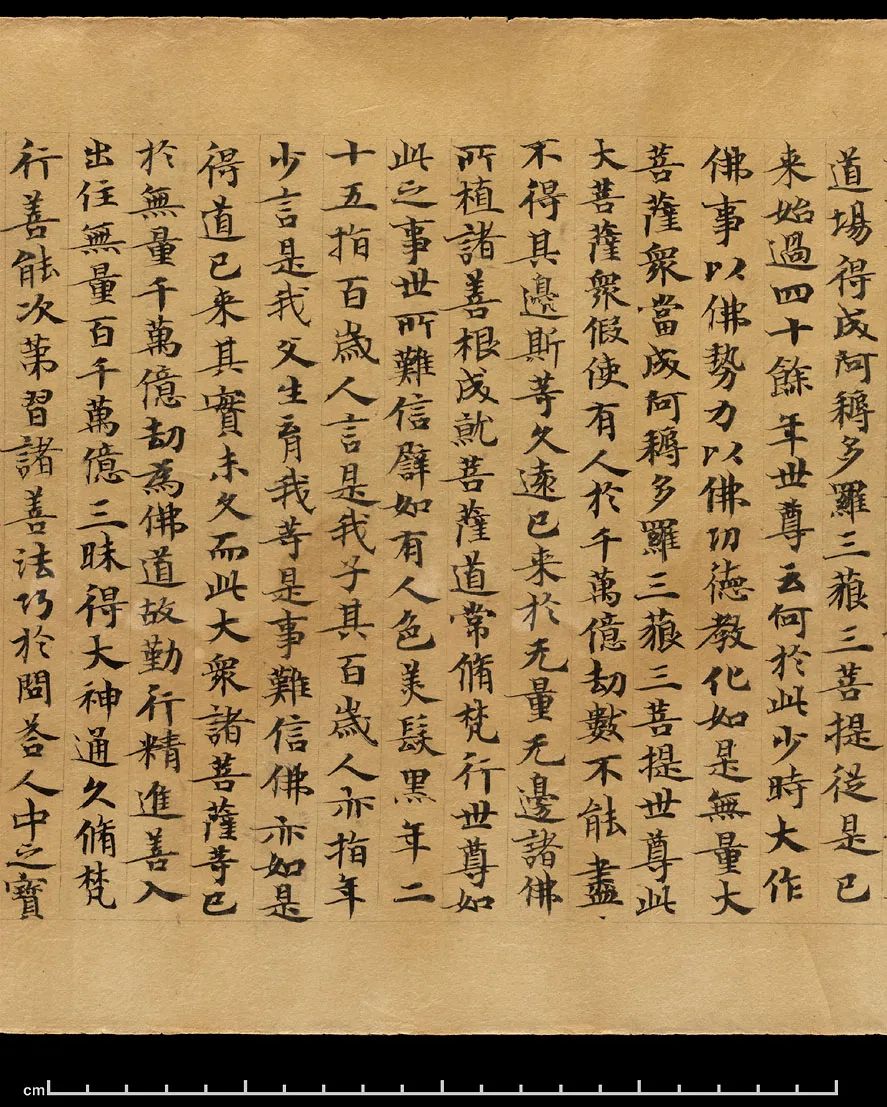 道場得成阿耨多羅三藐三菩提從是已
来始過四十餘年世尊云何於此少時大作
佛事以佛勢力以佛功德教化如是無量大
菩薩衆當成阿耨多羅三藐三菩提世尊此
大菩薩衆假使有人於千萬億劫數不能盡
不得其邊斯等久遠已来於无量无邊諸佛
所植諸善根成就菩薩道常脩梵行世尊如
此之事世所難信譬如有人色美髮黑年二
十五指百歲人言是我子其百歲人亦指年
少言是我父生育我等是事難信佛亦如是
得道已来其實未久而此大衆諸菩薩等已
於無量千萬億劫為佛道故勤行精進善入
出住無量百千萬億三昧得大神通久脩梵
行善能次第習諸善法巧於問荅人中之寶
cm